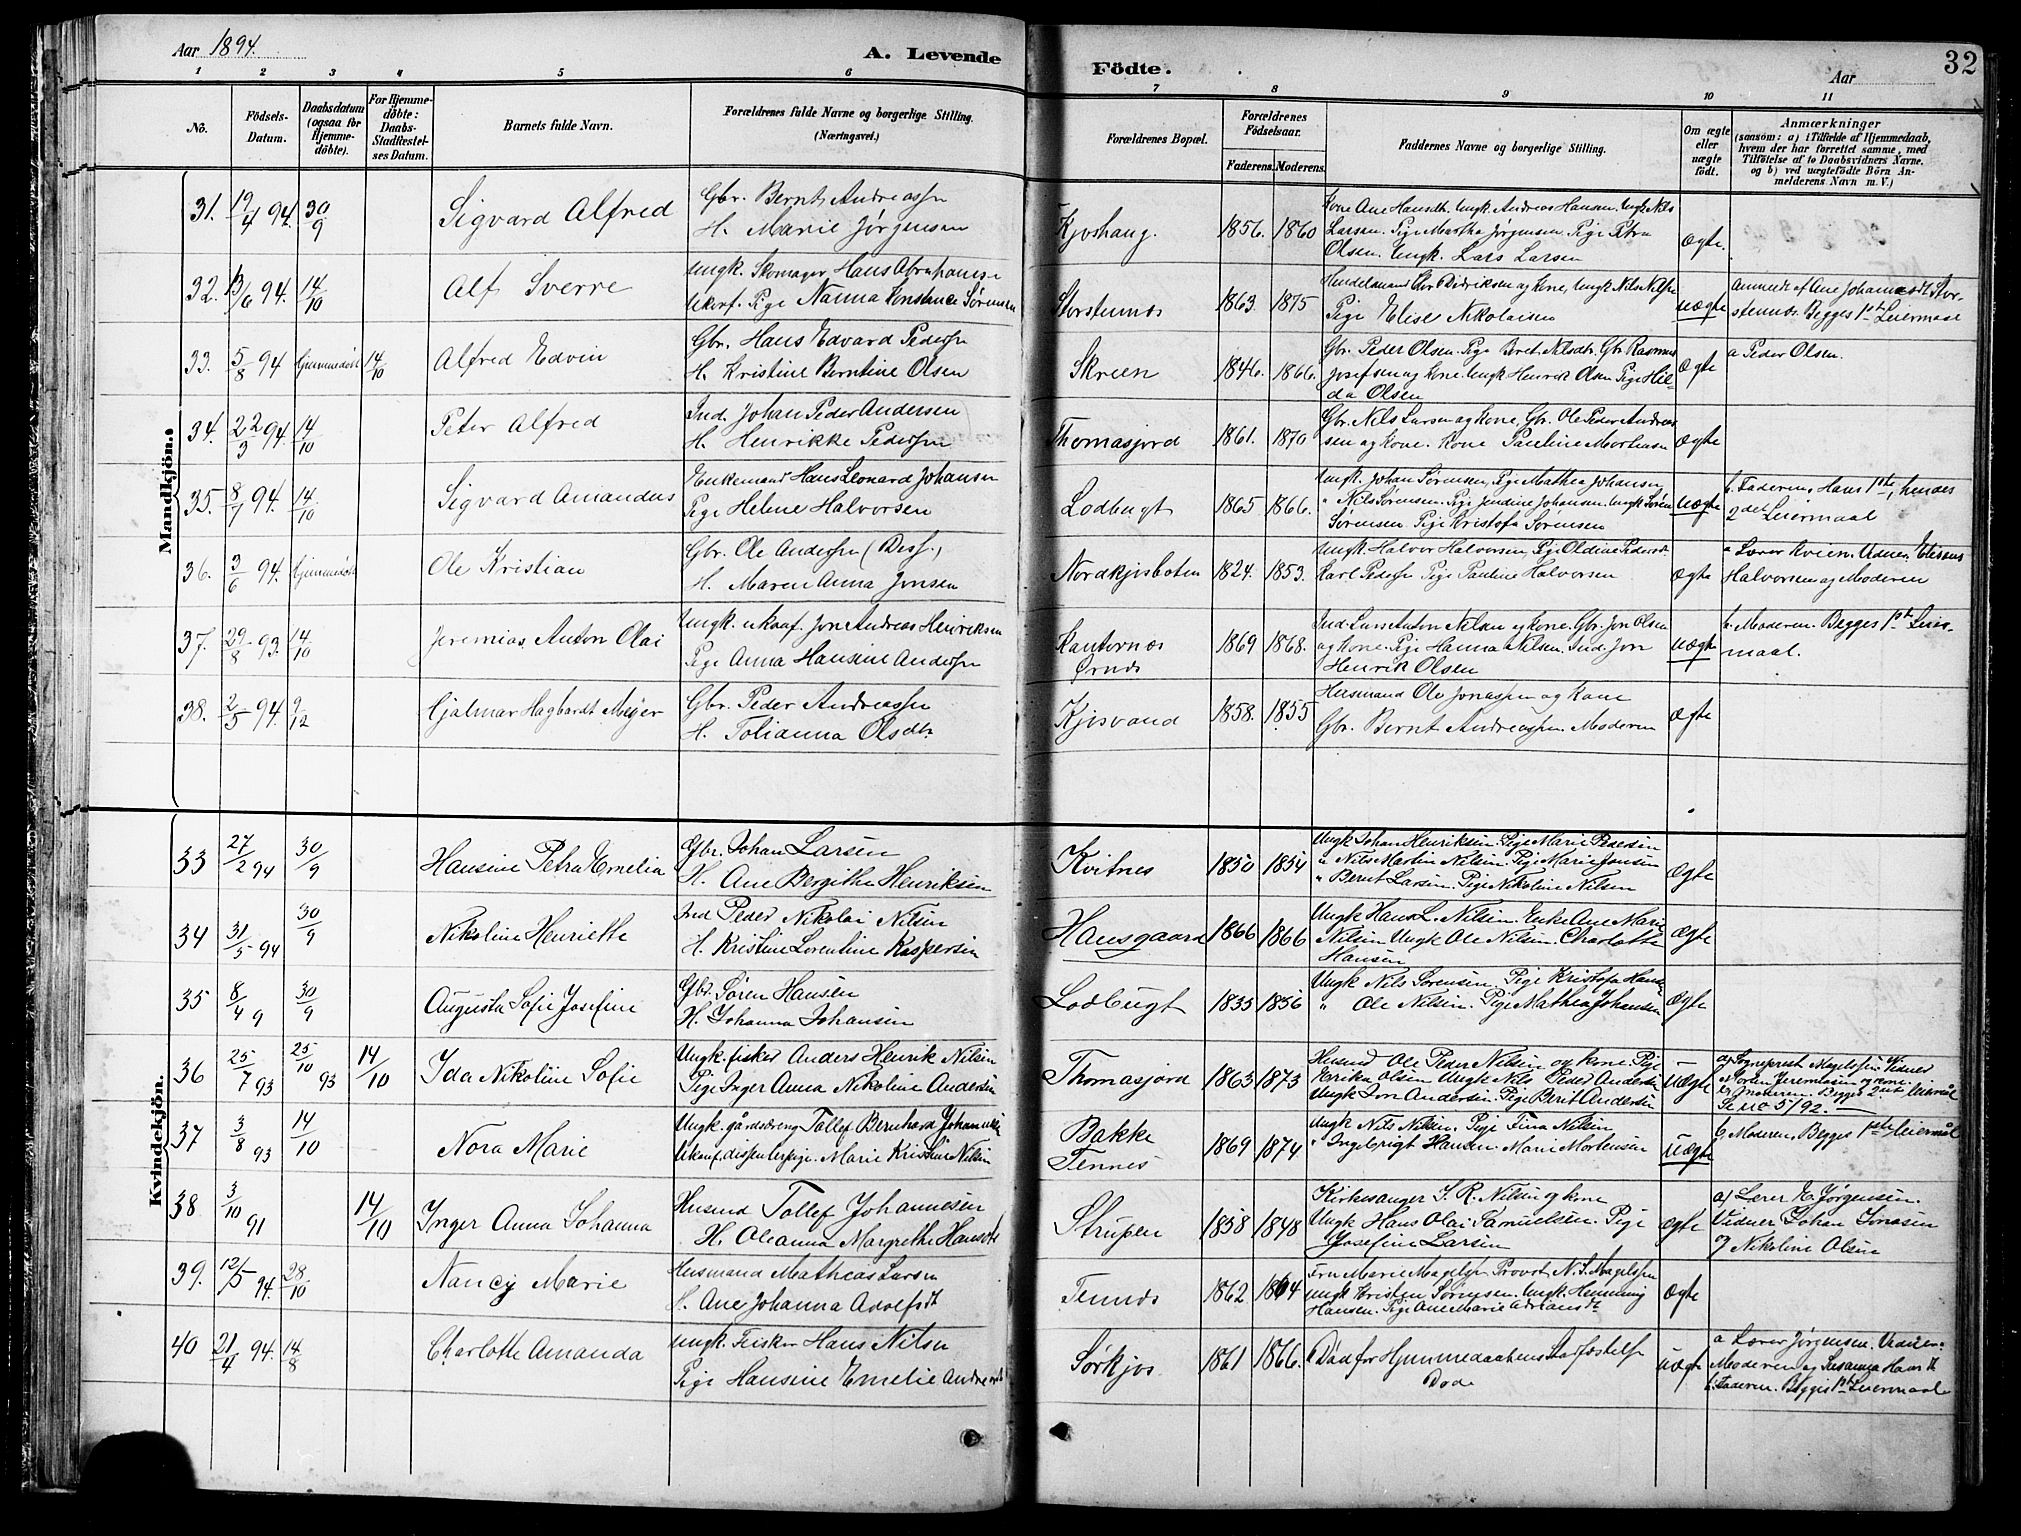 Aar 1894.
A. Levende Födte.
Aar
32
1 2 3 4 5 6 7 8 9 10 11
No.
Födsels-Datum.
Daabsdatum (ogsaa for Hjemme-döbte).
For Hjemme-döbte: Daabs-Stadfæstel-ses Datum.
Barnets fulde Navn.
Forældrenes fulde Navne og borgerlige Stilling. (Næringsvei.)
Forældrenes Bopæl.
Forældrenes Födselsaar.
Faderens. Moderens.
Faddernes Navne og borgerlige Stilling.
Om ægte eller uægte födt.
Anmærkninger
(saasom: a) i Tilfælde af Hjemmedaab,
hvem der har forrettet samme, med
Tilföielse af to Daabsvidners Navne.
og b) ved uægtefödte Börn An-
melderens Navn m. V.)
Mandkjön.
31. 19/4 94. 30/9 Sigvard Alfred
Gbr. Bernt Andreassen
H. Marie Jørgensen
Kjoshaug. 1856. 1860
Kone Ane Hansdtr. Ungk. Andreas Hansen. Ungk. Nils
Larsen. Pige Martha Jørgensen. Pige Petra
Olsen. Ungk. Lars Larsen
Ægte.
32. 13/6 94. 14/10 Alf Sverre
Ungk. Skomager, Hans Abrahamse
Ukonf. Pige Nanna Konstance Sørensen
Storstennes 1863. 1875
Handelsmand Didriksen og kone, Ungk Nils Nilsen
Pige Elise Nikolaisen
uægte
Anmeldt af Ane Johannesdt Stor-
stennes Begges 1ste Leiermaal
33. 5/8 94 Hjemmedøbt 14/10 Alfred Edvin
Gbr. Hans Edvard Pedersen
H. Kristine Berntine Olsen
Skreen 1846. 1866.
Gbr. Peder Olsen. Pige Beret Nilsdtr. Gbr Rasmus
Josefsen og kone. Ungk Henrik Olsen Pige Hil-
da Olsen
Ægte
a Peder Olsen.
34. 22/3 94 14/10 Peter Alfred
Ind. Johan Peder Andersen
H. Henrikke Pedersen
Thomasjord 1861. 1870
Gbr. Nils Larsen og kone, Gbr. Ole Peder Andreas
sen og kone. Kone Pauline Mortensen
Ægte
35. 8/7 94. 14/10 Sigvard Amandus
Enkemand Hans Leonard Johansen
Pige Helene Halvorsen
Lodbugt 1865 1866.
Ungk. Johan Sørensen, Pige Mathea Johansen,
" Nils Sørensen. Pige Jendine Johansen. Ungk Søren
Sørensen Pige Kristofa Sørensen
uægte
b. Faderen, Hans 1ste, hendes
2det Leiermaal
36. 3/6 94. Hjemmedøbt Ole Kristian
Gbr. Ole Andersen (Diss.)
H. Maren Anna Jonsen
Nordkjosboten 1824. 1853.
Ungk. Halvor Halvorsen, Pige Oldine Pedersdt
Karl Pedersen Pige Pauline Halvorsen
Ægte
a Lærer Kvien. Vidner, Elisæus
Halvorsen og Moderen
37. 29/8 93. 14/10 Jeremias Anton Olai
Ungk. ukonf. Jon Andreas Henriksen
Pige Anna Hansine Andersen
Kantornes
Ørnes 1869 1868.
Ind. Lars Anton Nilsen og kone. Gbr. Jon Olsen
og kone. Pige Hanna Nilsen. Ind. Jon
Henrik Olsen
uægte
b. Moderen. Begges 1ste Leier-
maal.
38. 2/5 94. 9/12 Hjalmar Hagbardt Meyer
Gbr. Peder Andreassen
H. Tolianna Olsdtr.
Kjosvand 1858. 1855
Husmand Ole Jonassen og Kone
Gbr. Bernt Andreassen. Moderen
Ægte
Kvindekjön.
33 27/2 94 30/9 Hansine Petra Emelia
Gbr. Johan Larsen
H. Ane Bergithe Henriksen
Kvitnes 1850 1854
Ungk Johan Henriksen Pige Marie Pedersen
" Nils Martin Nilsen. Pige Marie Jonsen
" Bernt Larsen. Pige Nikoline Nilsen
Ægte
34 31/5 94 30/9 Nikoline Henriette
Ind Peder Nikolai Nilsen
H. Kristine Lorentine Kaspersen
Hansgaard 1866 1866
Ungk Hans L. Nilsen. Enke Ane Marie
Nilsen Ungk Ole Nilsen. Charlotte
Hansen
Ægte
35 8/4 9 30/9 Augusta Sofie Josefine
Gbr. Søren Hansen
H. Johanna Johansen
Lodbugt 1835 1856
Ungk Nils Sørensen. Pige Kristofa Hans
" Ole Nilsen. Pige Mathea Johansen
Ægte
36 25/7 93 25/10 93 14/10 Ida Nikoline Sofie
Ungk. fisker Anders Henrik Nilsen
Pige Inger Anna Nikoline Andersen
Thomasjord 1863 1873
Husmd Ole Peder Nilsen og kone Pige
Erika Olsen Ungk Nils Peder Andersen
Ungk Jon Andersen. Pige Berit Andersen
—
Uægte
a) Sognepræst Magelssen Vidner
Morten Jeremiasen og kone
b) Moderen. Begges 2det leiermål
Se no 5/92. —
37 3/8 93 14/10 Nora Marie
Ungk. gårdsdreng Tollef Bernhard Johannesen
Ukonf. dissenterpige. Marie Kristine Nilsen
Bakke
Tennes 1869 1874
Ungk Nils Nilsen, Pige Fina Nilsen
" Ingebrigt Hansen Marie Mortensen
Uægte
b Moderen, Begges 1ste leiermål
38 3/10 91 14/10 Inger Anna Johanna
Husmd Tollef Johannesen
H. Oleanna Margrethe Hansdt
Strupen 1858 1848
Kirkesanger I. R. Nilsen og kone
Ungk Hans Olai Samuelsen. Pige
Josefine Larsen
ægte
a) Lærer E. Jørgensen.
Vidner Johan Jonasen
og Nikoline Olsen
39. 12/5 94. 28/10 Nancy Marie
Husmand Mathæas Larsen
H. Ane Johanna Adolfsdt
Tennes 1862 1864
Fru Marie Magelssen Provst N. S. Magelssen
Ungk Kristen Sørensen. Ungk. Henning
Hansen. Pige Ane Marie Adriansdt
Ægte
40 21/4 94. 14/8 Charlotte Amanda
Ungk. Fisker Hans Nilsen
Pige Hansine Emelie Andreasdt
Sørkjos 1861 1866.
Død før Hjemmedaabens Stadfæstelse
Døde
uægte
a Lærer Jørgensen. Vidner.
Moderen og Susanna Hansdt
b. Faderen. Begges 1ste Leiermaal